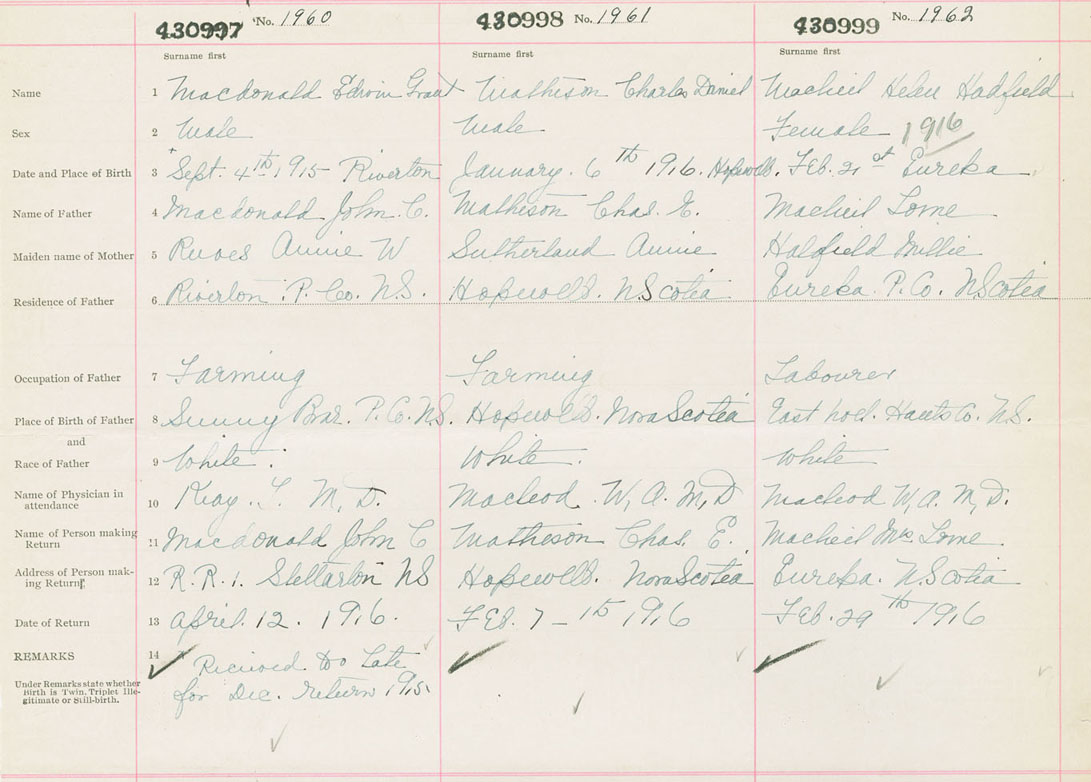 430997 No. 1960 430998 No. 1961 430999 No. 1962
Surname first Surname first Surname first
Name 1 Macdonald Edwin Grant Matheson Charles Daniel Macneil Helen Hadfield
Sex 2 Male Male Female 1916
Date and Place of Birth 3 Sept. 4th, 1915 Riverton January 6th 1916. Hopewell. Feb. 21st Eureka
Name of Father 4 Macdonald John C. Matheson Chas. E. Macneil Lorne
Maiden name of Mother 5 Annie W Sutherland Annie Hadfield Millie
Residence of Father 6 Riverton. P. Co. N.S. Hopewell. N.Scotia Eureka P. Co. N Scotia
Occupation of Father 7 Farming Farming Labourer
Place of Birth of Father 8 Sunny Brae. P. C. N.S. Hopewell. Nova Scotia East Noel. Hants Co. N.S.
and
Race of Father 9 White. White. White
Name of Physician in
attendance 10 M, D. Macleod. W, A. M, D Macleod W, A. M, D.
Name of Person making
Return 11 Macdonald John C Matheson Chas. E. Macneil Mrs Lorne.
Address of Person mak-
ing Return 12 R. R. 1. Stellarton NS Hopewell. Nova Scotia Eureka. N. Scotia
Date of Return 13 April. 12. 1916. FEB. 7 - th 1916 Feb. 29th 1916
REMARKS 14 Recieved too Late
Under Remarks state whether
Birth is Twin. Triplet Ille-
gitimate or Still-birth.
for Dec. return 1915.